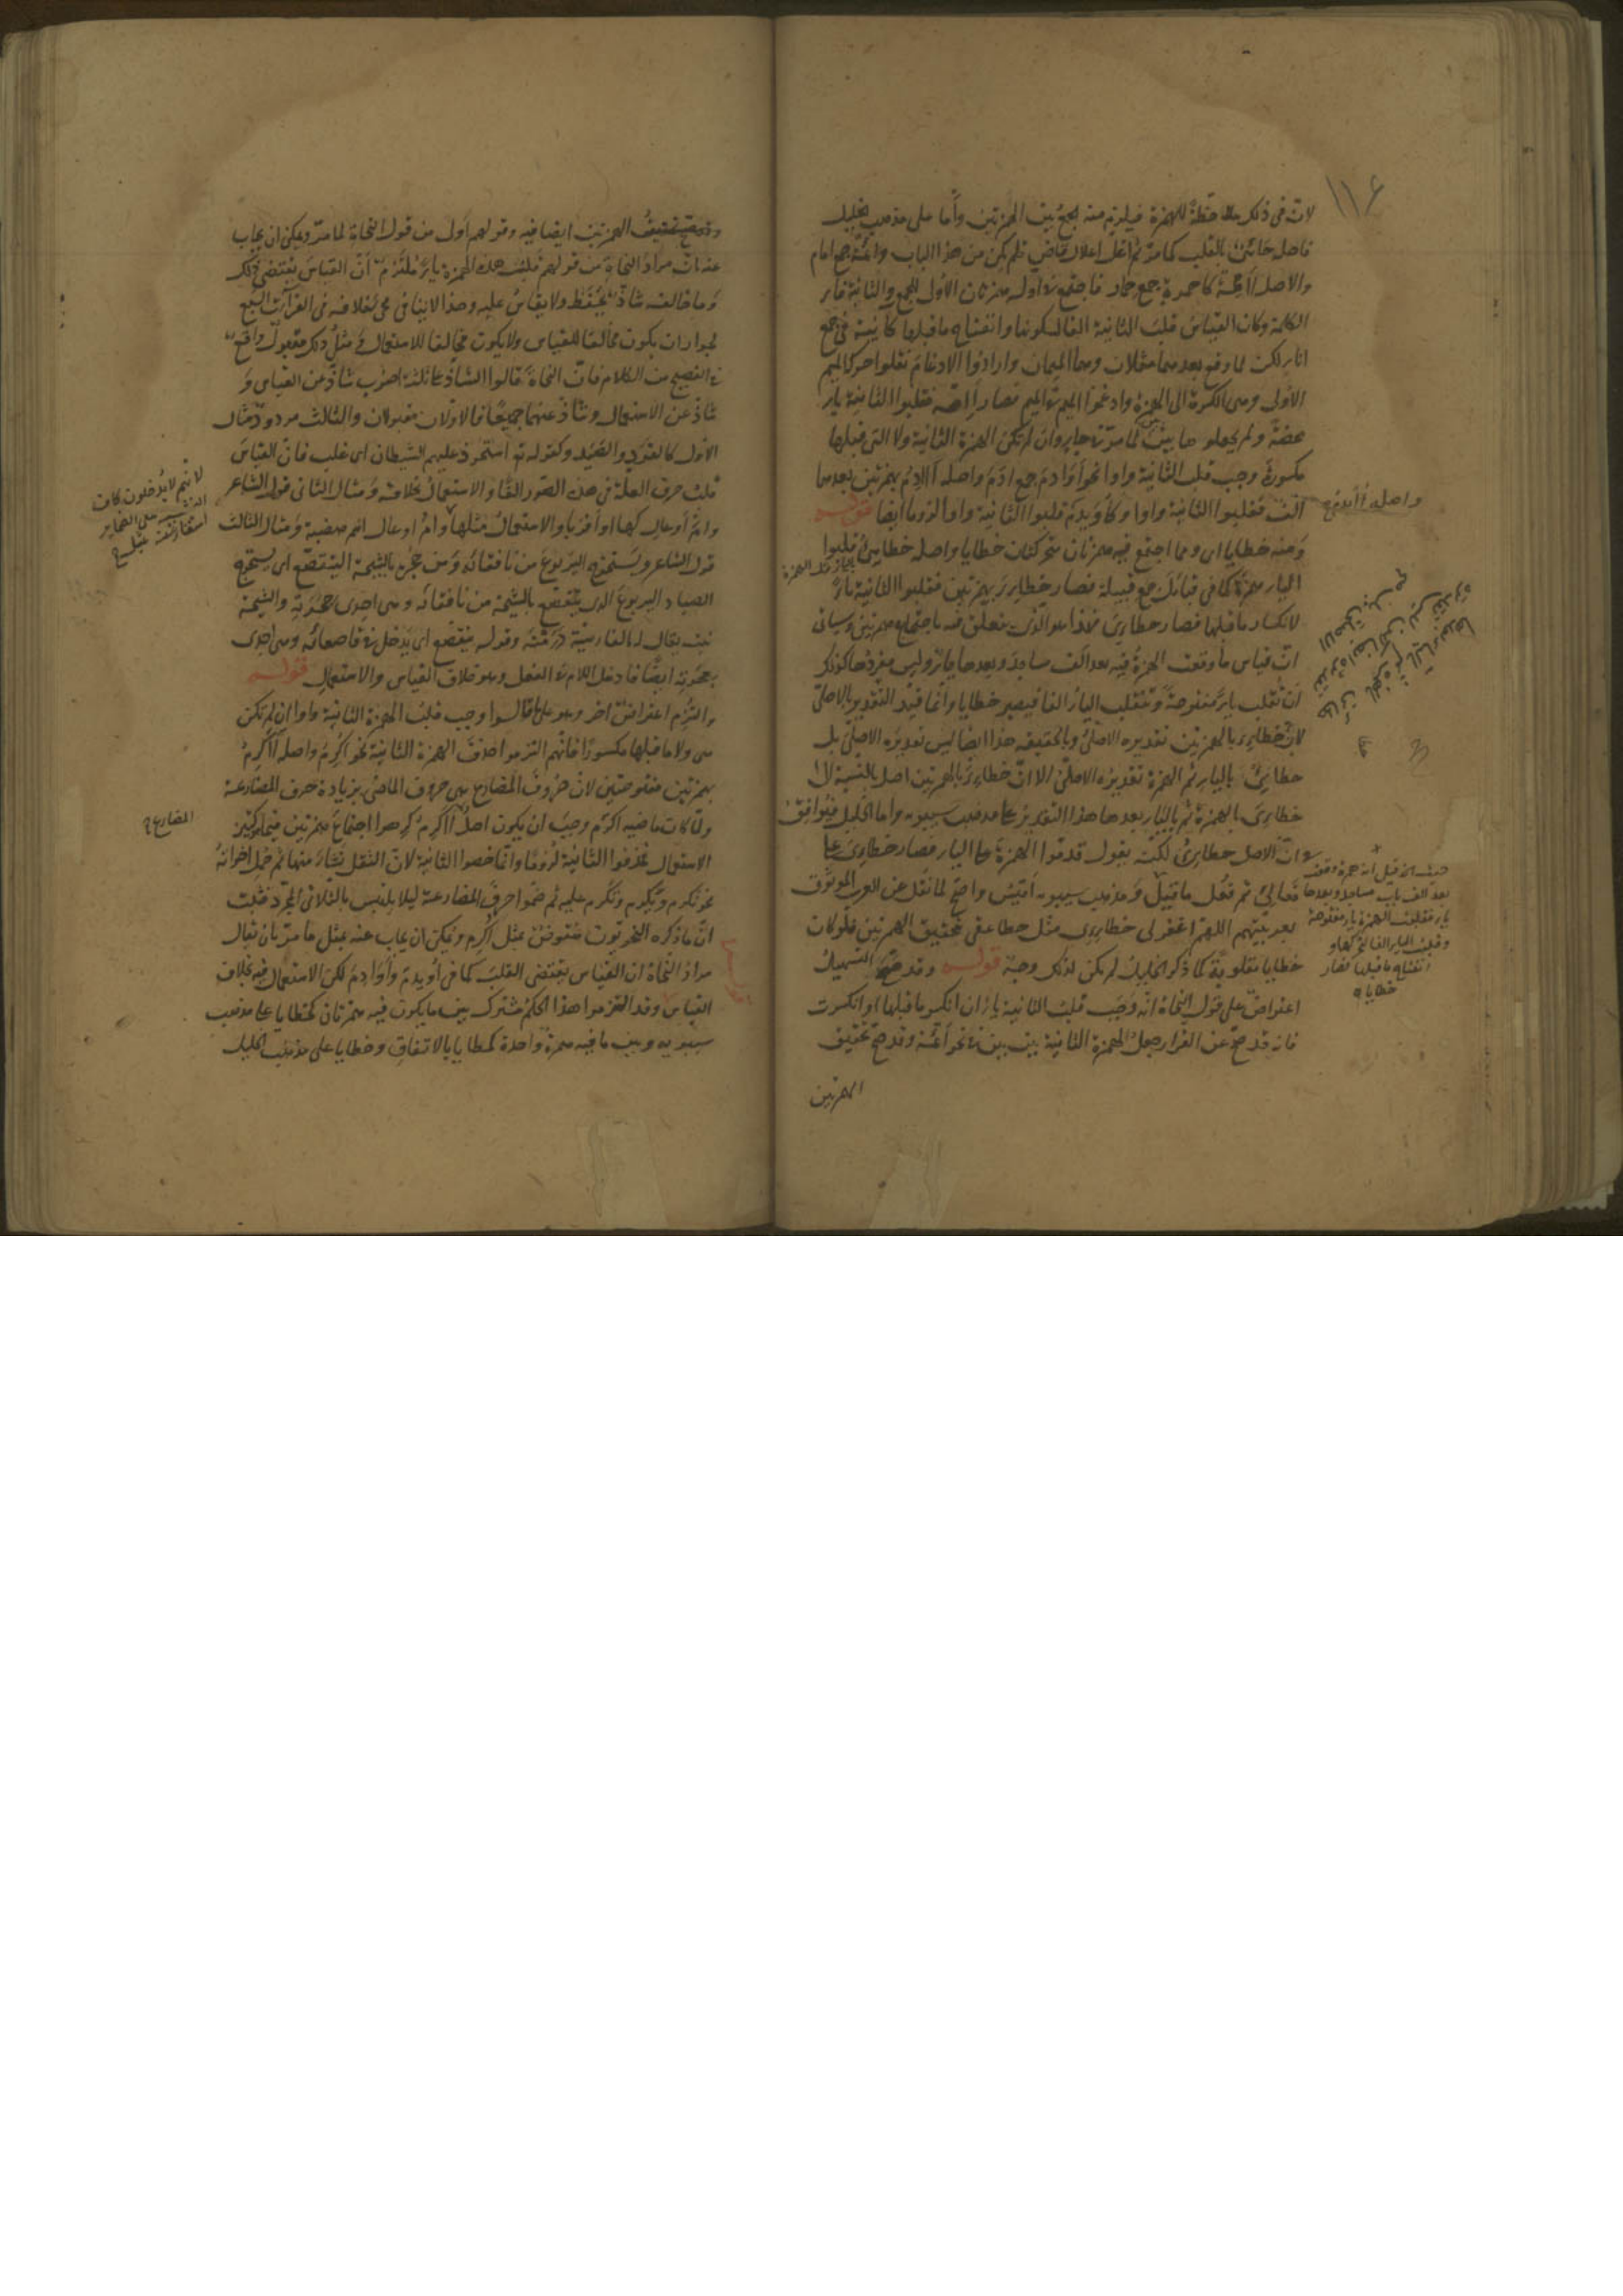 ١١٦
لان فى ذلك ملاحظة للهمزة فيلزم منه الجمع بين الهمزتين وأما على مذهب الخليل
فاصله جائئ بالقلب كما مر ثم اعل اعلال قاض فلم يكن من هذا الباب وائمة جمع امام
والاصل أاممة كاحمرة جمع حمار فاجتمع فى اوله همزتان الأولى للجمع والثانية فاء
الكلمة وكان القياس قلب الثانية الفا لسكونها وانفتاح ماقبلها كآنية فى جمع
اناء لكن لما وقع بعدهما مثلان وهما الميمان وارادوا الادغام نقلوا حركة الميم
الأولى وهى الكسرة الى الهمزة وادغموا الميم فى الميم فصار أئمة فقلبوا الثانية ياء
محضة ولم يجعلوها بين بين لما مر فى جاء وان لم تكن الهمزة الثانية ولا التى قبلها
مكسورة وجب قلب الثانية واوا نحو أوادم جمع آدم واصله أاادم بهمزتين بعدهما
الف فقلبوا الثانية واوا وكأويدم قلبوا الثانية واوا لزوما ايضا قوله
واصله أأيدم
ومنه خطايا اى ومما اجتمع فيه همزتان متحركتان خطايا واصله خطايئ قلبوا
الياء همزة كما فى قبائل جمع قبيلة فصار خطاءئ بهمزتين فقلبوا الثانية ياء
لانكسار ماقبلها فصار خطائى فهذا هو الذى تعلق به باجتماع همزتين وسيأتى
ان قياس ما وقعت الهمزة فيه بعد الف مساجد وبعدها ياء وليس مفردها كذلك
ان تقلب ياء مفتوحة وتنقلب الياء الفا فيصير خطايا وانما قيد التقدير بالاصلى
لان خطاءئ بالهمزتين تقديره الاصلى وبالحقيقة هذا ايضا ليس تقديره الاصلى بل
خطايئ بالياء ثم الهمزة تقديره الاصلى الا ان خطاءئ بالهمزتين اصل بالنسبة الى
خطائى بالهمزة ثم بالياء بعدها هذا التقدير على مذهب سيبويه وأما الخليل فيوافق
فى ان الاصل خطايئ لكنه يقول قدموا الهمزة على الياء فصار خطائى على
فعالئ ثم فعل ما قيل ومذهب سيبويه اقيس واصح لما نقل عن العرب الموثوق
بعربيتهم اللهم اغفر لى خطائئ مثل خطاععى بتحقيق الهمزتين فلو كان
خطايا مقلوبة كما ذكر الخليل لم يكن لذلك وجه قوله وقد صح التسهيل
اعتراض على قول النحاة انه وجب قلب الثانية ياء ان انكسر ماقبلها او انكسرت
فانه قد صح عن القراء جعل الهمزة الثانية بين بين فى نحو أئمة وقد صح تحقيق
الهمزتين
حيث انه قيل انه همزة وقعت
بعد الف باب مساجد وبعدها
ياء فقلبت الهمزة ياء مفتوحة
وقلبت الياء الفا لتحركها و
انفتاح ماقبلها فصار
خطايا
وقد صح تحقيق الهمزتين ايضا فيه وقولهم أولى من قول النحاة لما مر ويمكن ان يجاب
عنه بان مراد النحاة من قولهم قلبت هذه الهمزة ياء ملتزم ان القياس يقتضى ذلك
وما خالفه شاذ يحفظ ولا يقاس عليه وهذا لا ينافى مجئ خلافه فى القرآت السبع
لجواز ان يكون مخالفا للقياس ولا يكون مخالفا للاستعمال ومثل ذلك مقبول واقع
فى الفصيح من الكلام فان النحاة قالوا الشاذ على ثلثة اضرب شاذ عن القياس و
شاذ عن الاستعمال وشاذ عنهما جميعا فالاولان مقبولان والثالث مردود مثال
الأول كالقود والصيد وكقوله تع استحوذ عليهم الشيطان اى غلب فان القياس
قلب حرف العلة فى هذه الصور الفا والاستعمال بخلافه ومثال الثانى قول الشاعر
وام أوعال كها او اقربا والاستعمال مثلها وام اوعال اسم هضبة ومثال الثالث
قول الشاعر ويستخرج اليربوع من نافقائه ومن جحره بالشيحة اليتقصع اى يستخرج
الصياد اليربوع الذى يتقصع بالشيحة من نافقائه وهى احدى جحرته والشيحة
نبت يقال له بالفارسية درمنه وقوله يتقصع اى يدخل فى قاصعائه وهى احدى
جحرته ايضا فادخل اللام فى الفعل وهو خلاف القياس والاستعمال قوله
والتزم اعتراض آخر وهو على ما قالوا وجب قلب الهمزة الثانية واوا ان لم تكن
هى ولا ماقبلها مكسورا فانهم التزموا حذف الهمزة الثانية نحو اكرم واصله أأكرم
بهمزتين مفتوحتين لان حروف المضارع هى حروف الماضى بزيادة حرف المضارعة
ولما كان ماضيه اكرم وجب ان يكون اصل اكرم أأكرم اجتماع همزتين فيما كثير
الاستعمال فحذفوا الثانية لزوما وانما خصوا الثانية لان الثقل نشأ منها ثم حمل اخواته
نحو نكرم ويكرم وتكرم عليه ثم ضموا حرف المضارعة ليلا يلتبس بالثلاثى المجرد فثبت
ان ما ذكره النحويون منقوض بمثل اكرم ويمكن ان يجاب عنه بمثل ما مر بان يقال
مراد النحاة ان القياس يقتضى القلب كما فى أويدم وأوادم لكن الاستعمال فيه بخلاف
القياس وقد التزموا هذا الحكم مشترك بين ما يكون فيه همزتان كخطايا على مذهب
سيبويه وبين ما فيه همزة واحدة كمطايا بالاتفاق وخطايا على مذهب الخليل
لانهم لا يدخلون كاف
التشبيه على الضمائر
المضارع
قوله